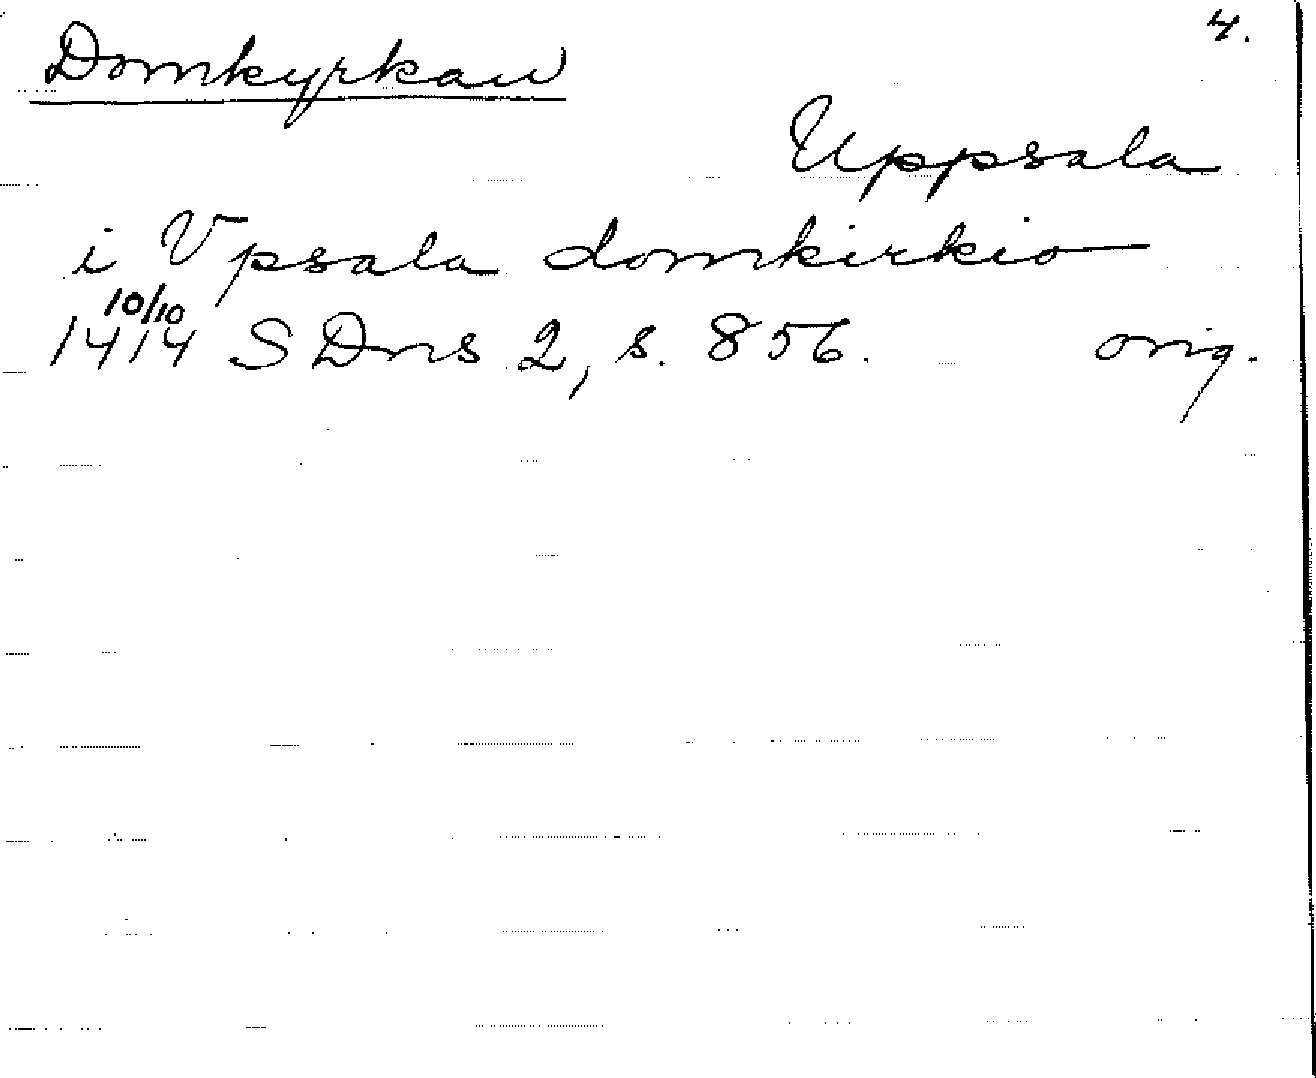 4.
Domkyrkan
Uppsala
i Vpsala domkirkio
10/10
1414 SDns 2, s. 856. orig.